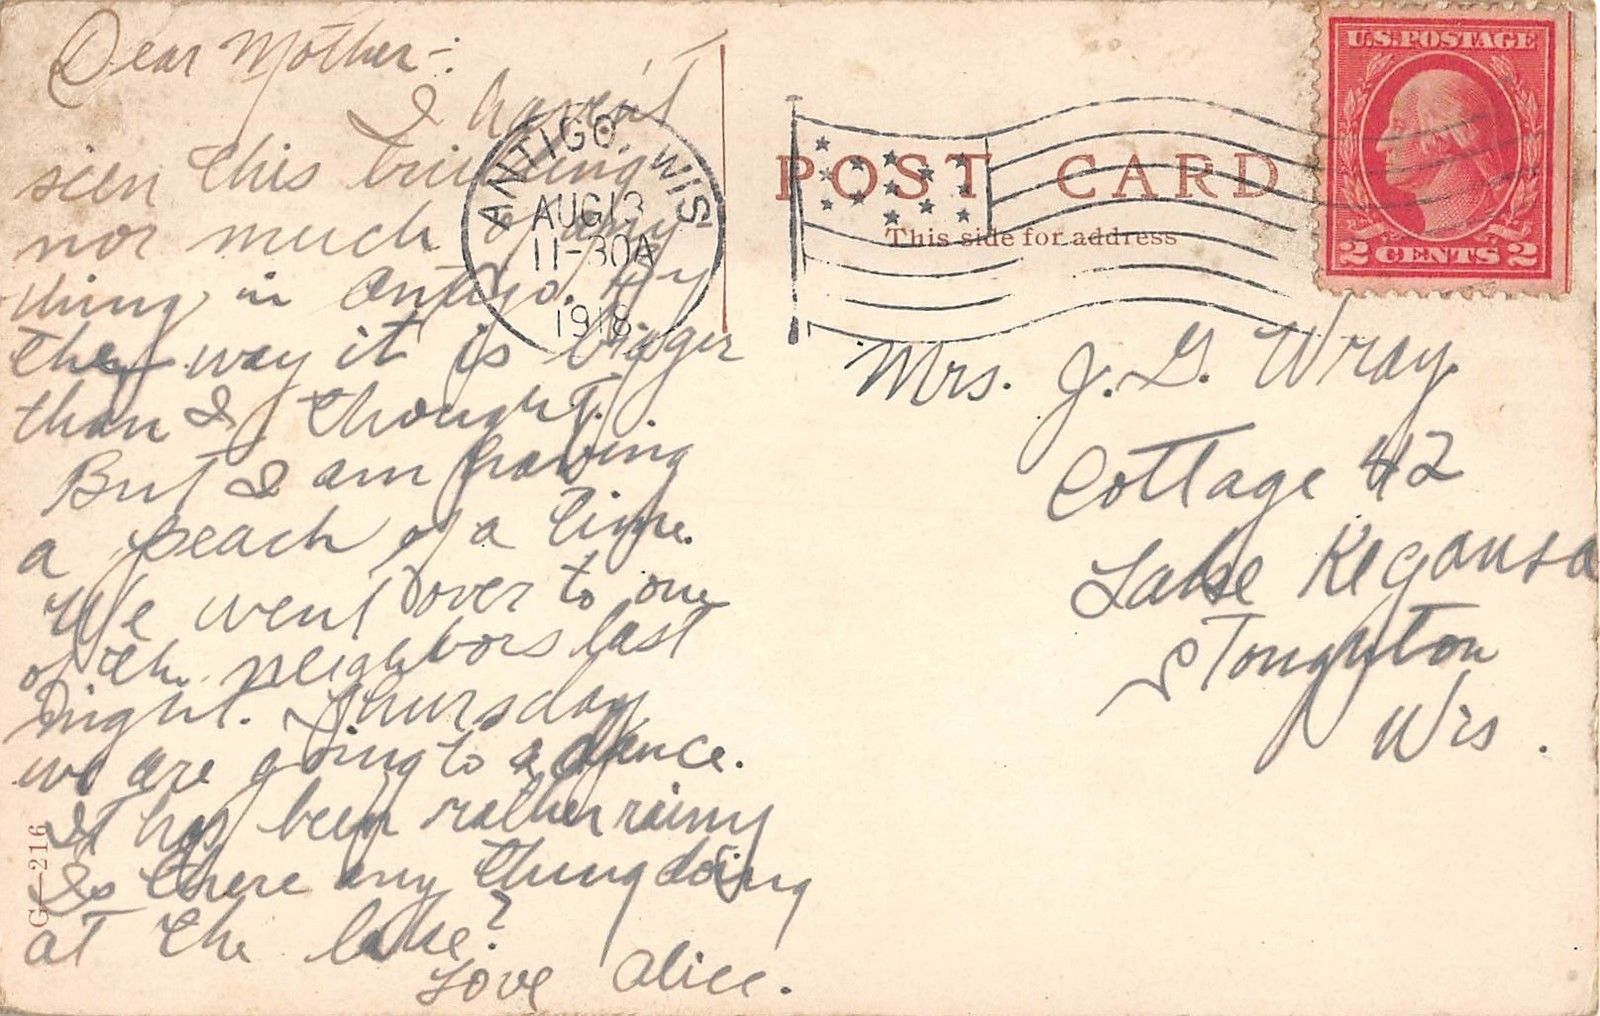 Dear Mother—:
I haven't
seen this building
nor much of any
thing in Antigo. By
the way it is bigger
than I thought.
But I am having
a peach of a time.
We went over to one
of the neighbors last
night. Thursday
we are going to a dance.
It has been rather rainy
Is there any thing doing
at the lake?
Love Alice.
G-216
ANTIGO, WIS
AUG 13
11-30A
1918
POST CARD
This side for address
U.S. POSTAGE
2 CENTS 2
Mrs. J. G. Wray
Cottage 42
Lake Kegonsa
Stoughton
Wis.